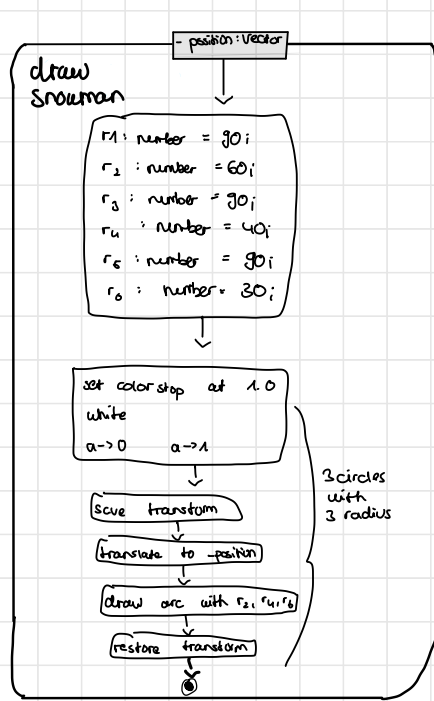 - position: Vector
draw
snowman
r1: number = 90;
r2 : number = 60;
r3 : number = 90;
r4 : number = 40;
r5 : number = 90;
r6 : number = 30;
set colorstop at 1.0
white
a->0 a->1
save transform
translate to -position
draw arc with r2, r4, r6
restore transform
3 circles
with
3 radius